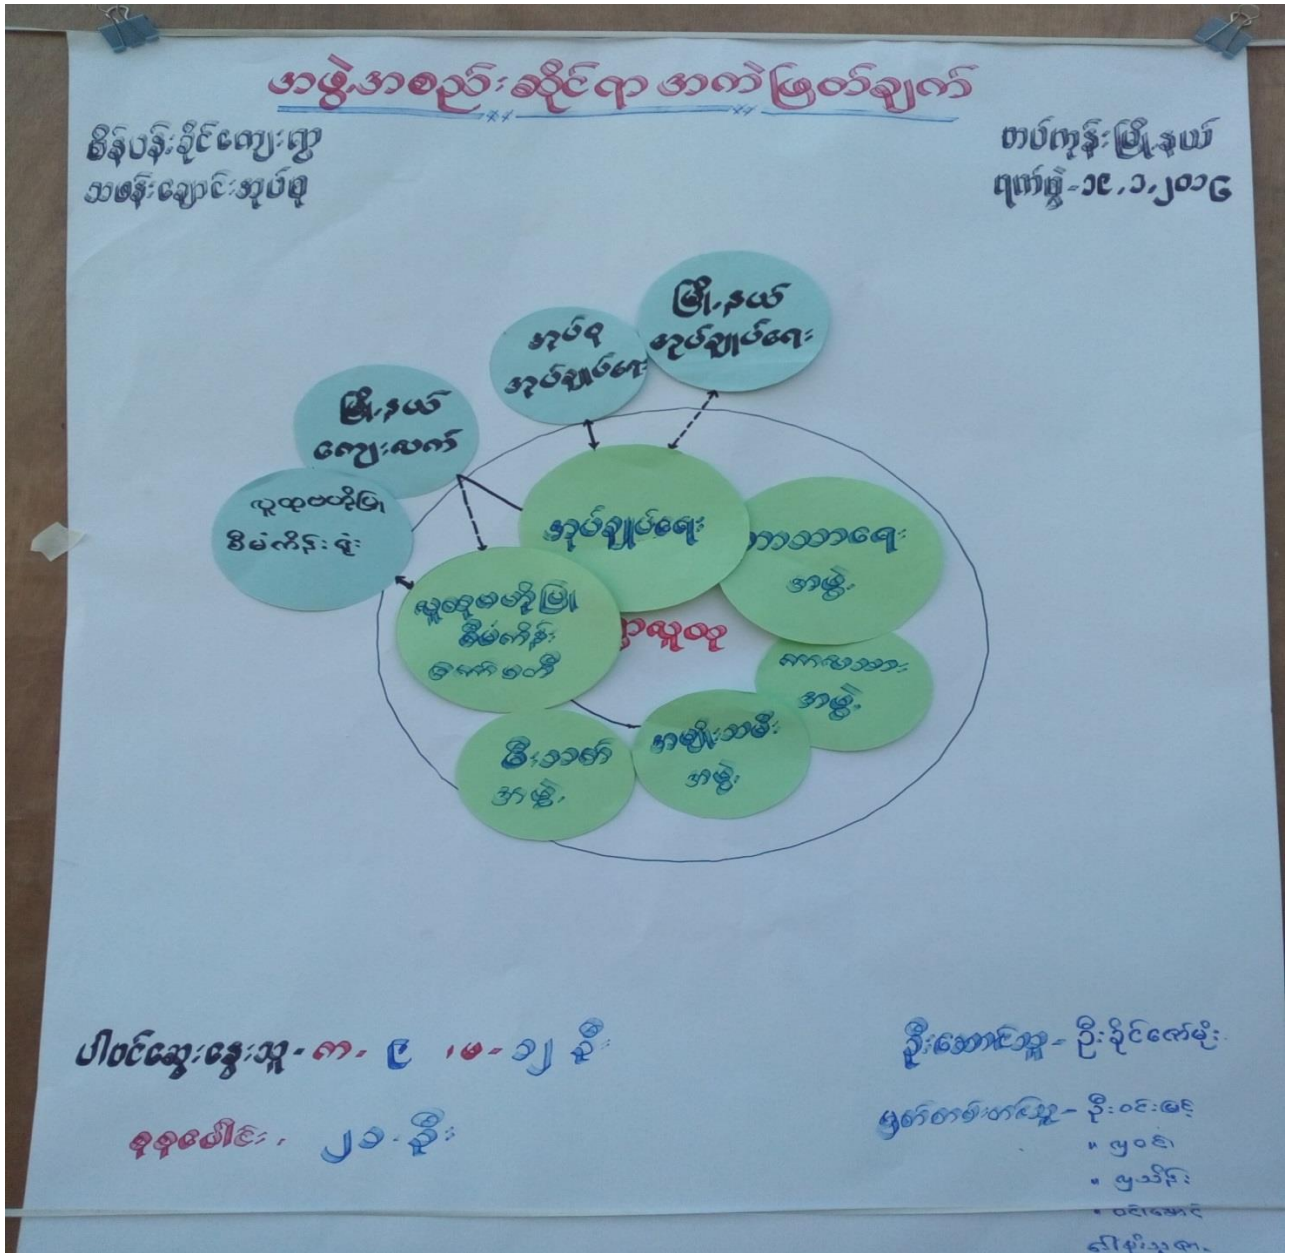 အဖွဲ့အစည်းဆိုင်ရာ အကဲဖြတ်ချက်
စိန်ပန်းခိုင်ကျေးရွာ
သဖန်းချောင်းအုပ်စု
တပ်ကုန်းမြို့နယ်
ရက်စွဲ-၁၉.၁.၂၀၁၆
မြို့နယ်
အုပ်ချုပ်ရေး
အုပ်စု
အုပ်ချုပ်ရေး
မြို့နယ်
ကျေးလက်
လူထုဗဟိုပြု
စီမံကိန်းရုံး
အုပ်ချုပ်ရေး
ဘာသာရေး
အဖွဲ့
လူထုဗဟိုပြု
စီမံကိန်း
ကော်မတီ
ရွာလူထု
ကာလသား
အဖွဲ့
အမျိုးသမီး
အဖွဲ့
မီးသတ်
အဖွဲ့
ပါဝင်ဆွေးနွေးသူ-ကျ-၉ ၊မ-၁၂ ဦး
စုစုပေါင်း- ၂၁-ဦး
ဦးဆောင်သူ-ဦးခိုင်ဇော်မိုး
မှတ်တမ်းတင်သူ-ဦးဝင်းမြင့်
" လှဝင်း
" လှသိန်း
" ဝင်းအောင်